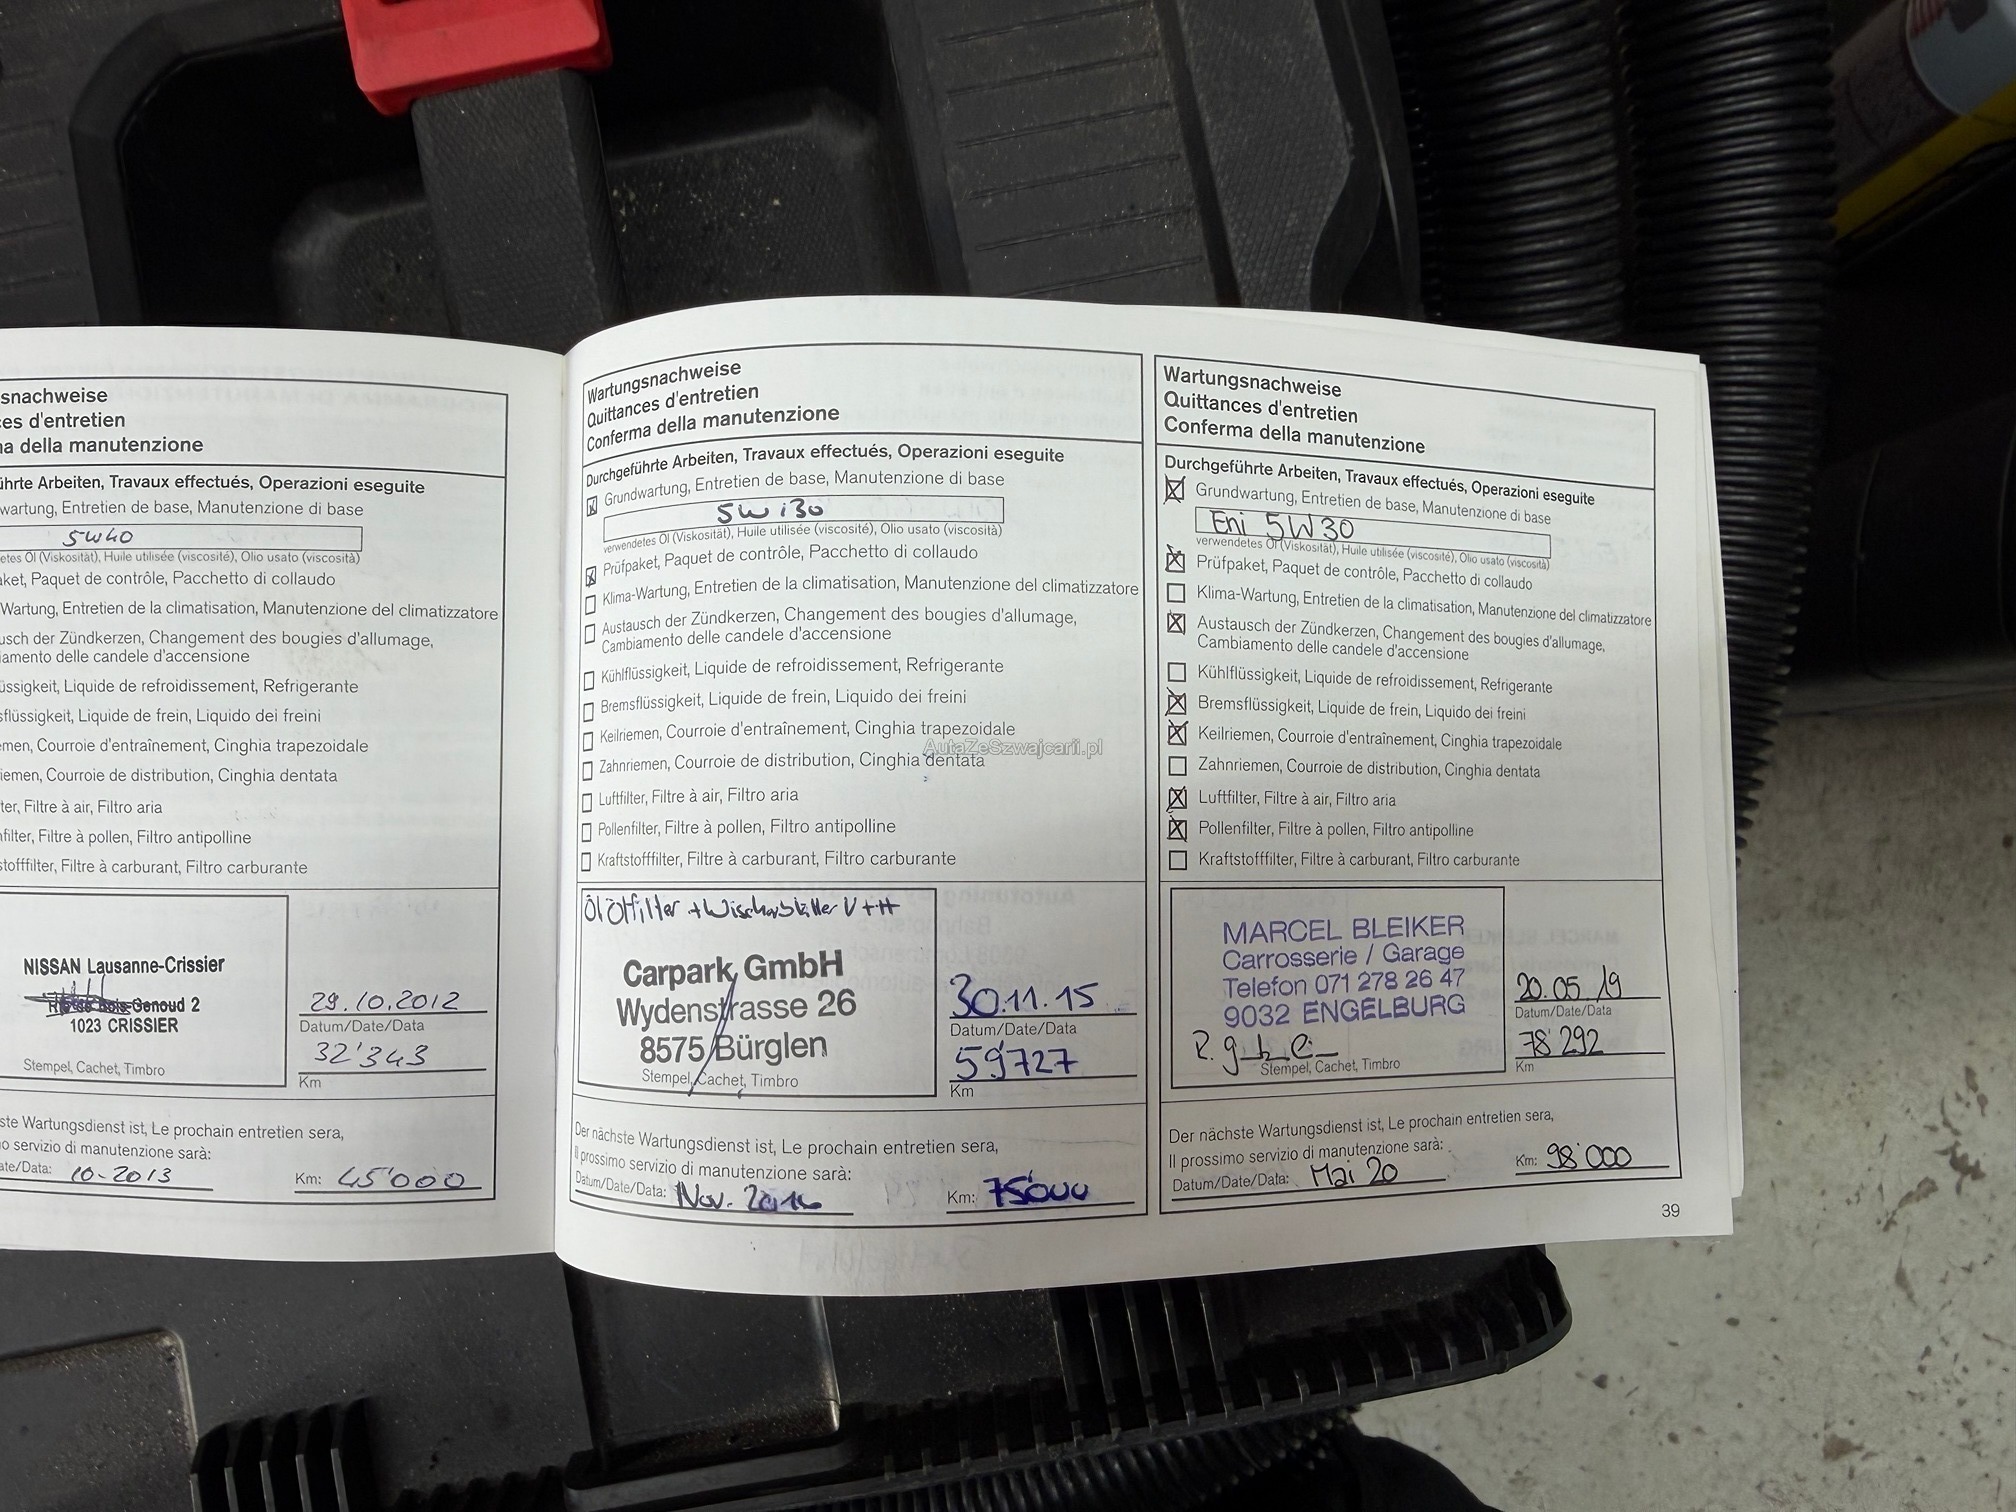 snachweise
ces d'entretien
na della manutenzione
ührte Arbeiten, Travaux effectués, Operazioni eseguite
wartung, Entretien de base, Manutenzione di base
5W40
etes Öl (Viskosität), Huile utilisée (viscosité), Olio usato (viscosità)
aket, Paquet de contrôle, Pacchetto di collaudo
Wartung, Entretien de la climatisation, Manutenzione del climatizzatore
usch der Zündkerzen, Changement des bougies d'allumage,
iamento delle candele d'accensione
üssigkeit, Liquide de refroidissement, Refrigerante
sflüssigkeit, Liquide de frein, Liquido dei freini
men, Courroie d'entraînement, Cinghia trapezoidale
iemen, Courroie de distribution, Cinghia dentata
ter, Filtre à air, Filtro aria
nfilter, Filtre à pollen, Filtro antipolline
stofffilter, Filtre à carburant, Filtro carburante
NISSAN Lausanne-Crissier
Genoud 2
1023 CRISSIER
Stempel, Cachet, Timbro
29.10.2012
Datum/Date/Data
32'343
Km
ste Wartungsdienst ist, Le prochain entretien sera,
no servizio di manutenzione sarà:
ate/Data: 10-2013 Km: 45'000
Wartungsnachweise
Quittances d'entretien
Conferma della manutenzione
Durchgeführte Arbeiten, Travaux effectués, Operazioni eseguite
Grundwartung, Entretien de base, Manutenzione di base
5W i30
verwendetes Öl (Viskosität), Huile utilisée (viscosité), Olio usato (viscosità)
Prüfpaket, Paquet de contrôle, Pacchetto di collaudo
Klima-Wartung, Entretien de la climatisation, Manutenzione del climatizzatore
Austausch der Zündkerzen, Changement des bougies d'allumage,
Cambiamento delle candele d'accensione
Kühlflüssigkeit, Liquide de refroidissement, Refrigerante
Bremsflüssigkeit, Liquide de frein, Liquido dei freini
Keilriemen, Courroie d'entraînement, Cinghia trapezoidale
AutaZeSzwajcarii.pl
Zahnriemen, Courroie de distribution, Cinghia dentata
Luftfilter, Filtre à air, Filtro aria
Pollenfilter, Filtre à pollen, Filtro antipolline
Kraftstofffilter, Filtre à carburant, Filtro carburante
Öl Ölfilter + Wischerblätter V+H
Carpark GmbH
Wydenstrasse 26
8575 Bürglen
Stempel, Cachet, Timbro
30.11.15
Datum/Date/Data
59'727
Km
Der nächste Wartungsdienst ist, Le prochain entretien sera,
Il prossimo servizio di manutenzione sarà:
Datum/Date/Data: Nov. 2016 Km: 75'000
Wartungsnachweise
Quittances d'entretien
Conferma della manutenzione
Durchgeführte Arbeiten, Travaux effectués, Operazioni eseguite
Grundwartung, Entretien de base, Manutenzione di base
Eni 5W30
verwendetes Öl (Viskosität), Huile utilisée (viscosité), Olio usato (viscosità)
Prüfpaket, Paquet de contrôle, Pacchetto di collaudo
Klima-Wartung, Entretien de la climatisation, Manutenzione del climatizzatore
Austausch der Zündkerzen, Changement des bougies d'allumage,
Cambiamento delle candele d'accensione
Kühlflüssigkeit, Liquide de refroidissement, Refrigerante
Bremsflüssigkeit, Liquide de frein, Liquido dei freini
Keilriemen, Courroie d'entraînement, Cinghia trapezoidale
Zahnriemen, Courroie de distribution, Cinghia dentata
Luftfilter, Filtre à air, Filtro aria
Pollenfilter, Filtre à pollen, Filtro antipolline
Kraftstofffilter, Filtre à carburant, Filtro carburante
MARCEL BLEIKER
Carrosserie / Garage
Telefon 071 278 26 47
9032 ENGELBURG
Stempel, Cachet, Timbro
20.05.19
Datum/Date/Data
78'292
Km
Der nächste Wartungsdienst ist, Le prochain entretien sera,
Il prossimo servizio di manutenzione sarà:
Datum/Date/Data: Mai 20 Km: 98'000
39